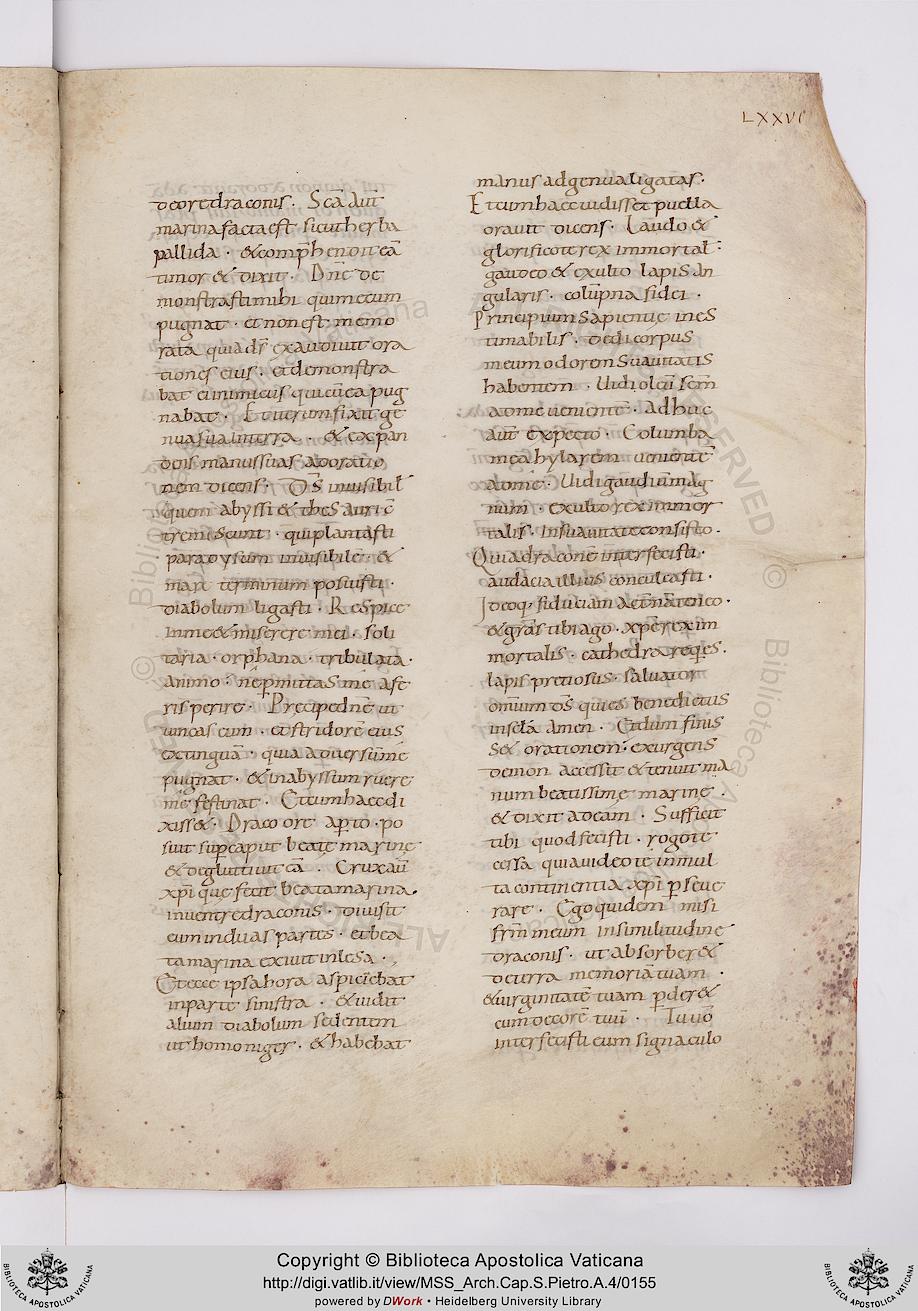 LXXVI
de ore draconis. Scā aut̄
marina facta est sicut herba
pallida. & comp̄hendit eā
timor & dixit. Dn̄e de
monstrasti mihi qui mecum
pugnat. et non est memo
rata quia ds̄ exaudivit ora
tiones eius. et demonstra
bat ei inimicus qui cū ea pug
nabat. Et iterum fixit ge
nua sua in terra. & expan
dens manus suas adoratio
nem dicens. Ds̄ invisibil̄
quem abyssi & thesauri c̄
tremiscunt. qui plantasti
paradysum invisibile. &
mari terminum posuisti.
diabolum ligasti. Respice
in me & miserere mei. soli
taria. orphana. tribulata.
animo. ne p̄mittas me aste
ris perire. Precipe dn̄e ut
vincas eum. et stridorē eius
extinguā. quia adversū me
pugnat. & in abyssum ruere
me festinat. Et cum haec di
xiss&. Draco ore ap̄to. po
suit sup̄ caput beatę marinę
& degluttivit eā. Crux aū
xp̄i que fecit beata marina.
in ventre draconis. divisit
eum in duas partes. et bea
ta marina exivit inlesa.
Et ecce ipsa hora aspiciebat
in parte sinistra. & vidit
alium diabolum sedentem
ut homo niger. & habebat
manus ad genua ligatas.
Et cum haec vidisset puella
oravit dicens. Laudo &
glorifico te rex immortal̄
gaudeo & exulto lapis an
gularis. colūpna fidei.
Principium sapientię ines
timabilis. dedi corpus
meum odorem suavitatis
habentem. Vidi olei scm̄
ad me venientē. adhuc
aut̄ expecto. Columba
mea hylarem venientē
ad me. Vidi gaudiū mag
num. exulto rex inmor
talis. In suavitate consisto.
Quia draconē interfecisti.
audacia illius conculcasti.
Ideoq; fiduciam aetnā teneo.
& gras̄ tibi ago. xp̄e rex im
mortalis. cathedra reqes.
lapis pretiosus. salvator
omium ds̄ qui es benedictus
in sclā amen. Et dum finis
s& orationem. exurgens
demon accessit & tenuit ma
num beatissimę marinę.
& dixit ad eam. Sufficit
tibi quod fecisti. rogo te
cessa quia video te in mul
ta continentia xp̄i p̄seve
rare. Ego quidem misi
frm̄ meum in similitudinē
draconis. ut absorber&
de terra memoriā tuam.
& virginitatē tuam p̄der&
cum decorē tuū. Tu vō
interfecisti eum signaculo
Copyright © Biblioteca Apostolica Vaticana
http://digi.vatlib.it/view/MSS_Arch.Cap.S.Pietro.A.4/0155
powered by DWork • Heidelberg University Library